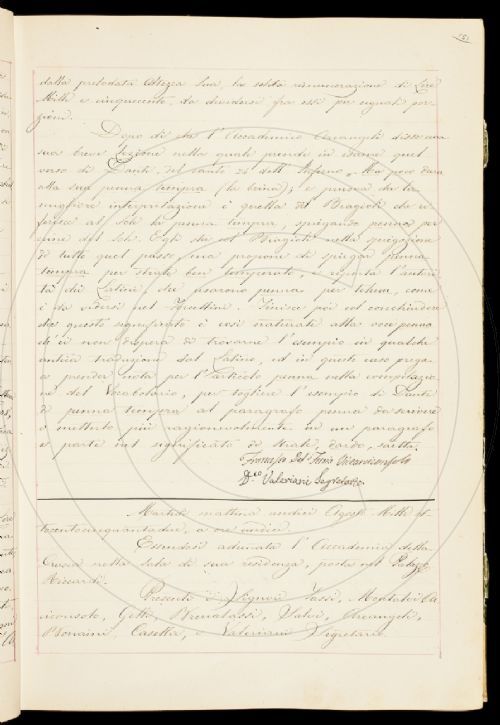 151
dalla prelodata Altezza Sua, la solita rimunerazione di Lire
Mille e cinquecento, da dividersi fra essi per eguali por-
zioni.
Dopo di che l'Accademico Arcangeli disse una
sua breve Lezione nella quale prende in esame quel
verso di Dante, del canto 24 dell'Inferno "Ma poco dura
alla sua penna tempra (la brina); e prova che la
migliore interpretazione è quella del Biagioli che ri-
ferisce al Sole la penna tempra, spiegando penna per
crine del Sole. Egli sta col Biagioli nella spiegazione
di tutto quel passo, ma propone di spiegar penna
tempra per strale ben temperato, e riporta l'autori-
tà dei Latini, che usarono penna per telum, come
è da vedersi nel Forcellini. Finisce poi col conchiudere
che questo significato è così naturale alla voce penna
ch'ei non dispera di trovarne l'esempio in qualche
antica traduzione dal Latino, ed in questo caso prega
a prender nota per l'articolo penna nella compilazio-
ne del Vocabolario, per togliere l'esempio di Dante
di penna tempra al paragrafo penna da scrivere
e metterlo più ragionevolmente in un paragrafo
a parte nel significato di strale, dardo, saetta.
Francesco Del Furia Vicearciconsolo
D.co Valeriani Segretario
Martedì mattina undici Agosto Mille ot-
tocentocinquantadue, a ore undici.
Essendosi adunata l'Accademia della
Crusca nella Sala di sua residenza, posta nel Palazzo
Riccardi.
Presenti i Signori Tassi, Montalvi
ciconsolo, Gelli, Brenalassi, Salvi, Arcangeli,
Bonaini, Casella, e Valeriani Segretario.